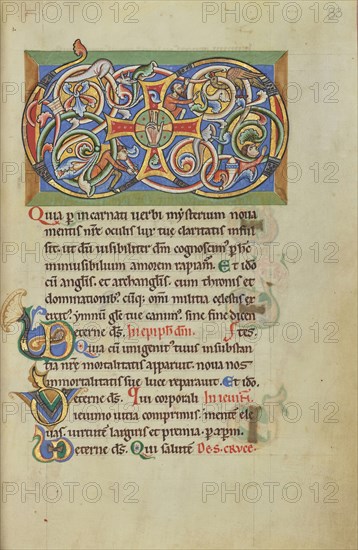 33
Quia p incarnati verbi mysterium noua
mentis nr̄e oculis lux tue claritatis inful
sit. ut dum uisibiliter dm̄ cognoscim; p hūc
inuisibilium amorem rapiam̄. Et ido
cū anglis. et archanglis. cum thronis et
dominationib; cūq; om̄i militia celestis ex
ercit; ymnū glē tue canim;. sine fine dicen
Eterne ds̄. In epiph dn̄i. tes.
Quia cum unigenit; tuus in substan
tia nrē mortalitatis apparuit. noua nos
immortalitatis sue luce reparauit. Et ido.
Eterne ds̄. Qui corporali In ieiuniī.
ieiunio uitia comprimis. mente ele
uas. uirtutē largiris et premia. p xpm̄.
Eterne ds̄. Qui salutē De s. cruce.
PHOTO 12